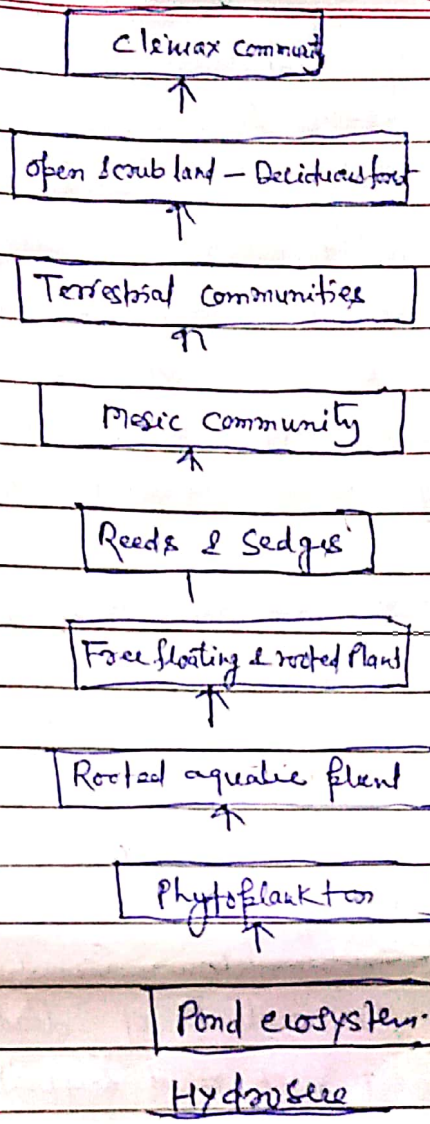 Climax Communit
Open Scrub land – Deciduous forst
Terrestrial Communities
Mesic Community
Reeds & Sedges
Free floating & rooted Plant
Rooted aquatic plant
Phytoplankton
Pond ecosystem.
Hydrosere